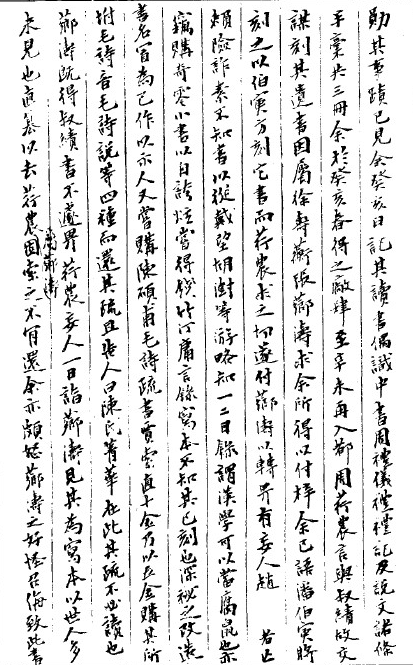 勛其事蹟已見余癸亥日記其讀書偶識中書周禮儀禮禮記及說文諸條
手稾共三冊余於癸亥春得之廠肆至辛未再入都周荇農言與叔績故交
謀刻其遺書因屬徐壽蘅張薌濤求余所得以付梓余已諾潘伯寅將
刻之以伯寅方刻它書而荇農求之切遂付薌濤以轉畀有妄人趙 者止
頰險詐素不知書以從戴望胡澍等游略知一二目錄謂漢學可以當腐鼠也亦
竊購奇零小書以自誇炫嘗得鈔竹汀庸言錄寫本不知其已刻也深祕之改造
書名冒為己作以示人又嘗購陳碩甫毛詩疏書賈索直十金乃以五金購其所
坿毛詩音毛詩說等四種而還其疏且告人曰陳氏菁華在此其疏不必讀也
薌濤既得叔績書不遽畀荇農妄人一日詣薌濤見其為寫本以世人多
未見也直篡以去荇農屬薌濤固索之不肯還余亦頗怒薌濤之好怪召侮致此書